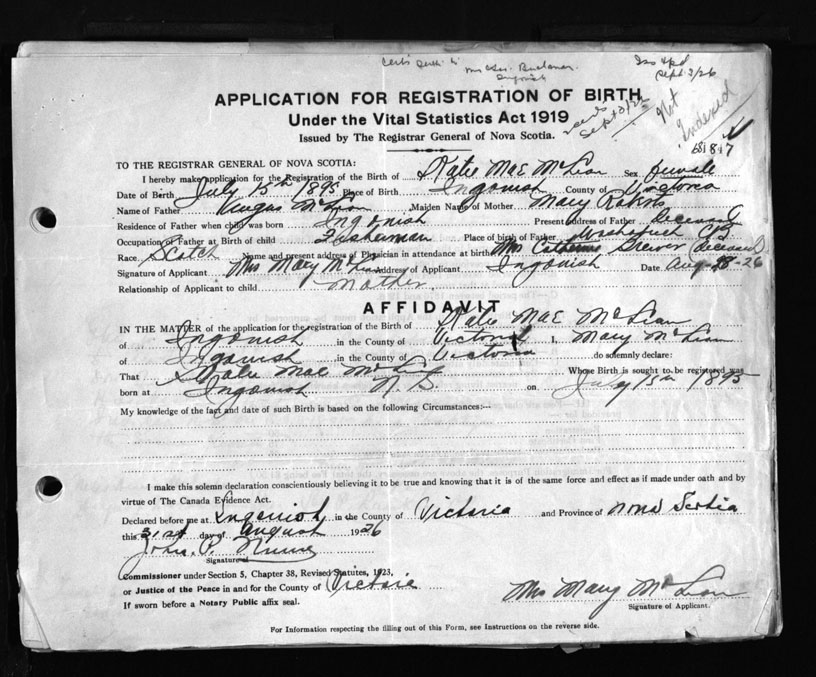 Mrs Chas. Buchanan
Ingonish
Sept 3/26
APPLICATION FOR REGISTRATION OF BIRTH
Under the Vital Statistics Act 1919
Issued by The Registrar General of Nova Scotia.
Sept 3/26
Not Indexed
817
TO THE REGISTRAR GENERAL OF NOVA SCOTIA:
I hereby make application for the Registration of the Birth of Katie Mae McLean Sex female
Date of Birth July 15th 1895 Place of Birth Ingonish County of Victoria
Name of Father Angus McLean Maiden Name of Mother Mary
Residence of Father when child was born Ingonish Present address of Father Deceased
Occupation of Father at Birth of child Fisherman Place of birth of Father C B
Race Scotch Name and present address of Physician in attendance at birth Mrs Catherine (deceased)
Signature of Applicant Mrs Mary McLean Address of Applicant Ingonish Date Aug 26
Relationship of Applicant to child Mother
AFFIDAVIT
IN THE MATTER of the application for the registration of the Birth of Katie Mae McLean
of Ingonish in the County of Victoria I, Mary McLean
of Ingonish in the County of Victoria do solemnly declare:
That Katie Mae McLean Whose Birth is sought to be registered was
born at Ingonish N. S. on July 15th 1895
My knowledge of the fact and date of such Birth is based on the following Circumstances:—
I make this solemn declaration conscientiously believing it to be true and knowing that it is of the same force and effect as if made under oath and by
virtue of The Canada Evidence Act.
Declared before me at Ingonish in the County of Victoria and Province of Nova Scotia
this 31st day of August 1926
Signature
Commissioner under Section 5, Chapter 38, Revised Statutes, 1923,
or Justice of the Peace in and for the County of Victoria
If sworn before a Notary Public affix seal.
Mrs Mary McLean
Signature of Applicant.
For Information respecting the filling out of this Form, see Instructions on the reverse side.